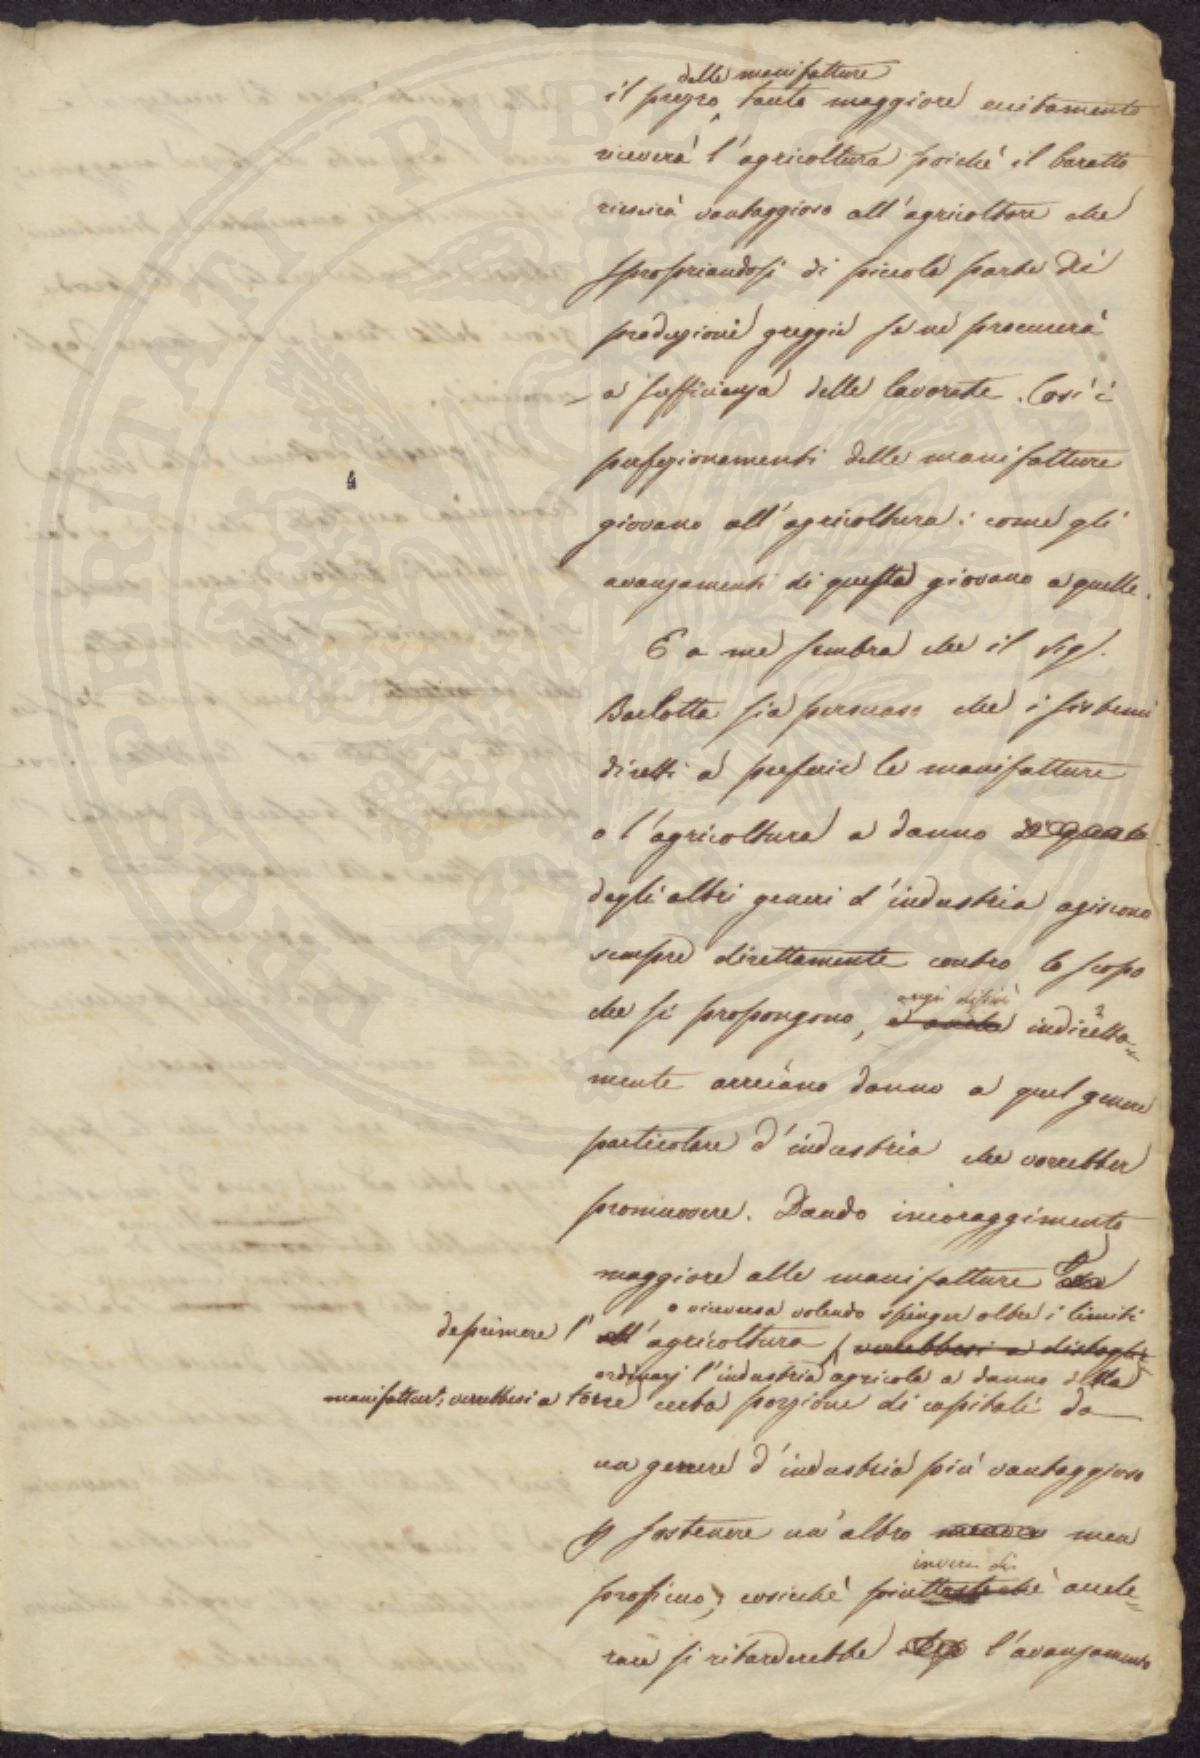 delle manifatture
il prezzo, tanto maggiore eccitamento
riceverà l'agricoltura poichè il baratto
riescirà vantaggioso all'agricoltore che
spropriandosi di piccola parte di
produzioni greggie se ne procurerà
a sufficienza delle lavorate. Così i
perfezionamenti delle manifatture
giovano all'agricoltura: come gli
avanzamenti di questa giovano a quelle.
E a me sembra che il Sig.
Barlotta sia persuaso che i sistemi
diretti a preferir le manifatture
o l'agricoltura a danno di questa
degli altri generi d'industria agiscono
sempre direttamente contro lo scopo
che si propongono, indiretta=
mente arrecano danno a quel genere
particolare d'industria che vorrebber
promuovere. Dando incoraggimento
maggiore alle manifatture
o viceversa volendo spinger oltre i limiti
deprimere l' all'agricoltura verrebbesi a distoglier
ordinarj l'industria agricola a danno della
manifattur: verrebbesi a torre certa porzione di capitali da
un genere d'industria più vantaggioso
p sostenere un'altro meno men
invece di
proficuo; cosicchè piuttosto che accele=
rare si ritarderebbe l'avanzamento